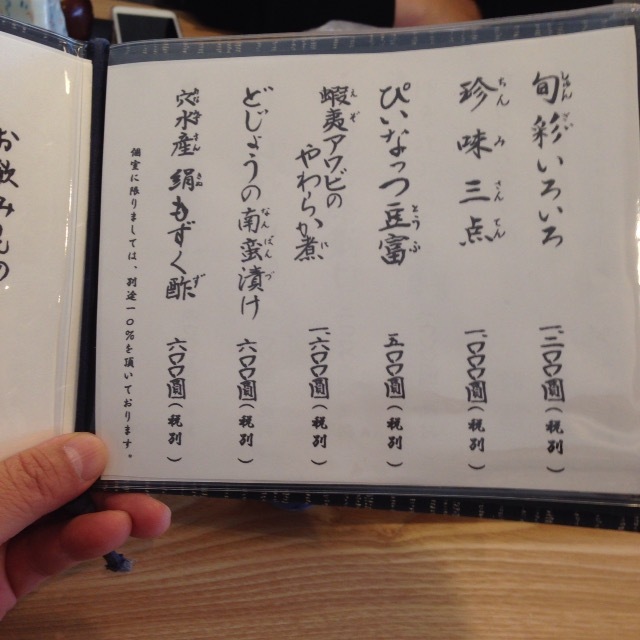 旬彩いろいろ 一二〇〇圓(税別)
珍味三点 一〇〇〇圓(税別)
ぴいなっつ豆富 五〇〇圓(税別)
蝦夷アワビのやわらか煮 一六〇〇圓(税別)
どじょうの南蛮漬け 六〇〇圓(税別)
穴水産絹もずく酢 六〇〇圓(税別)
個室に限りましては、別途一〇%を頂いております。
お飲みもの